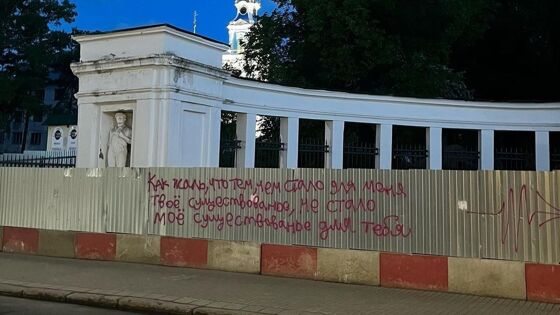 Как жаль, что тем, чем стало для меня
Твоё существованое, не стало
Моё существаваное для тебя